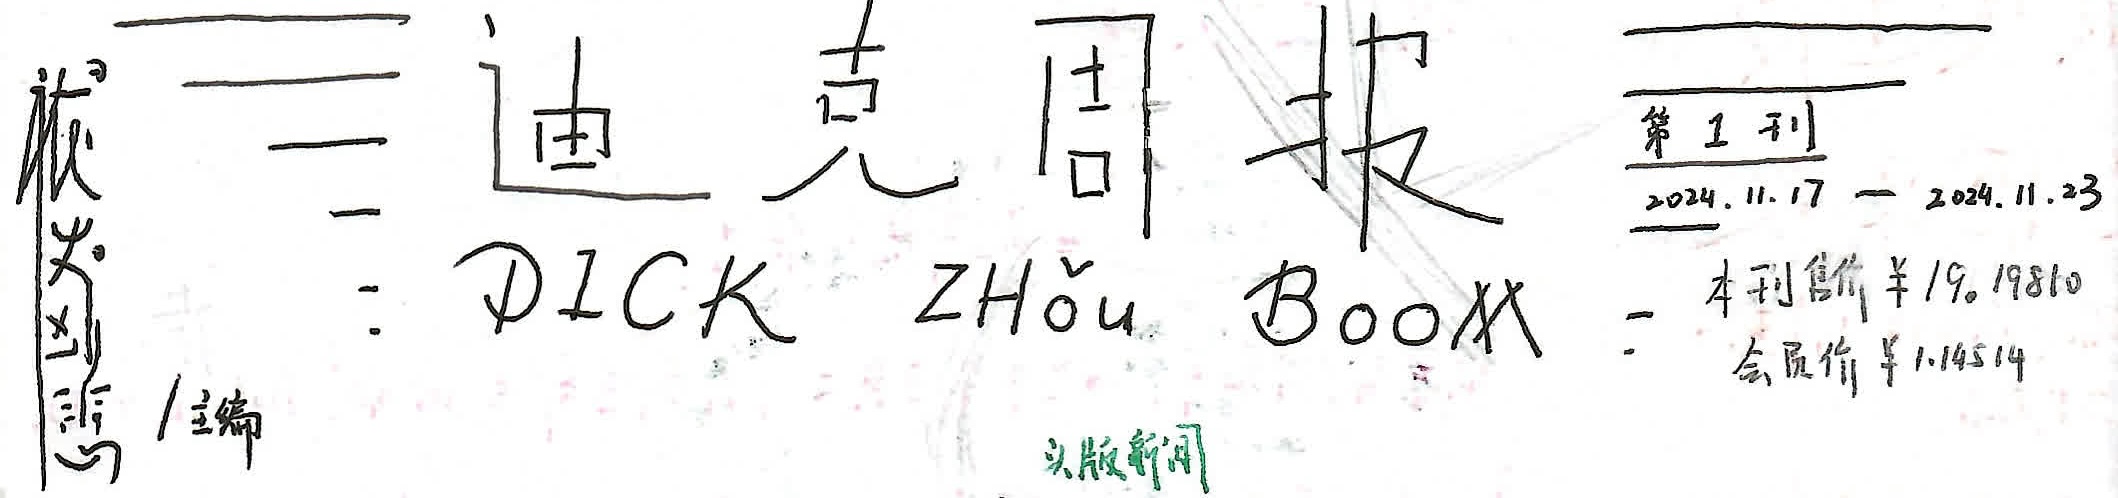 迪克周报
DICK ZHǒu BOOM
第1刊
2024.11.17 — 2024.11.23
本刊售价¥19.19810
会员价¥1.14514
/主编
头版新闻